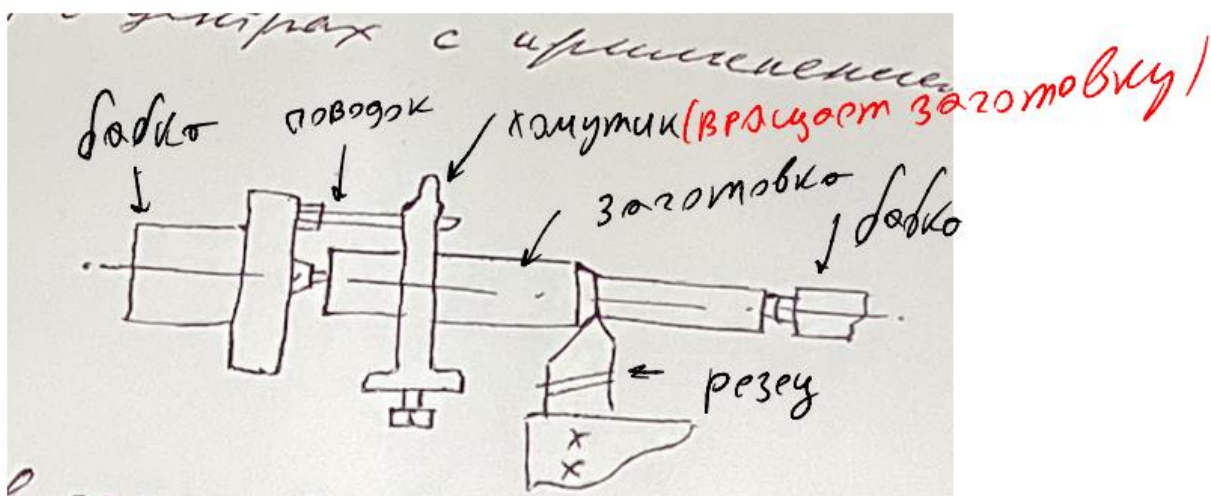 центрах с применением
бабка
поводок
хомутик (вращает заготовку)
заготовка
бабка
резец
х
х